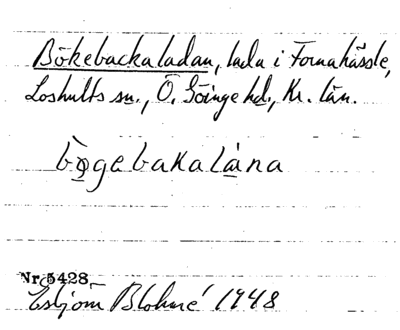 Bökebackaladan, lada i Fornahässle,
Loshults sn., Ö. Göinge hd., Kr. län.
bögebakalána
Nr 5428
Esbjörn Blohmé 1948